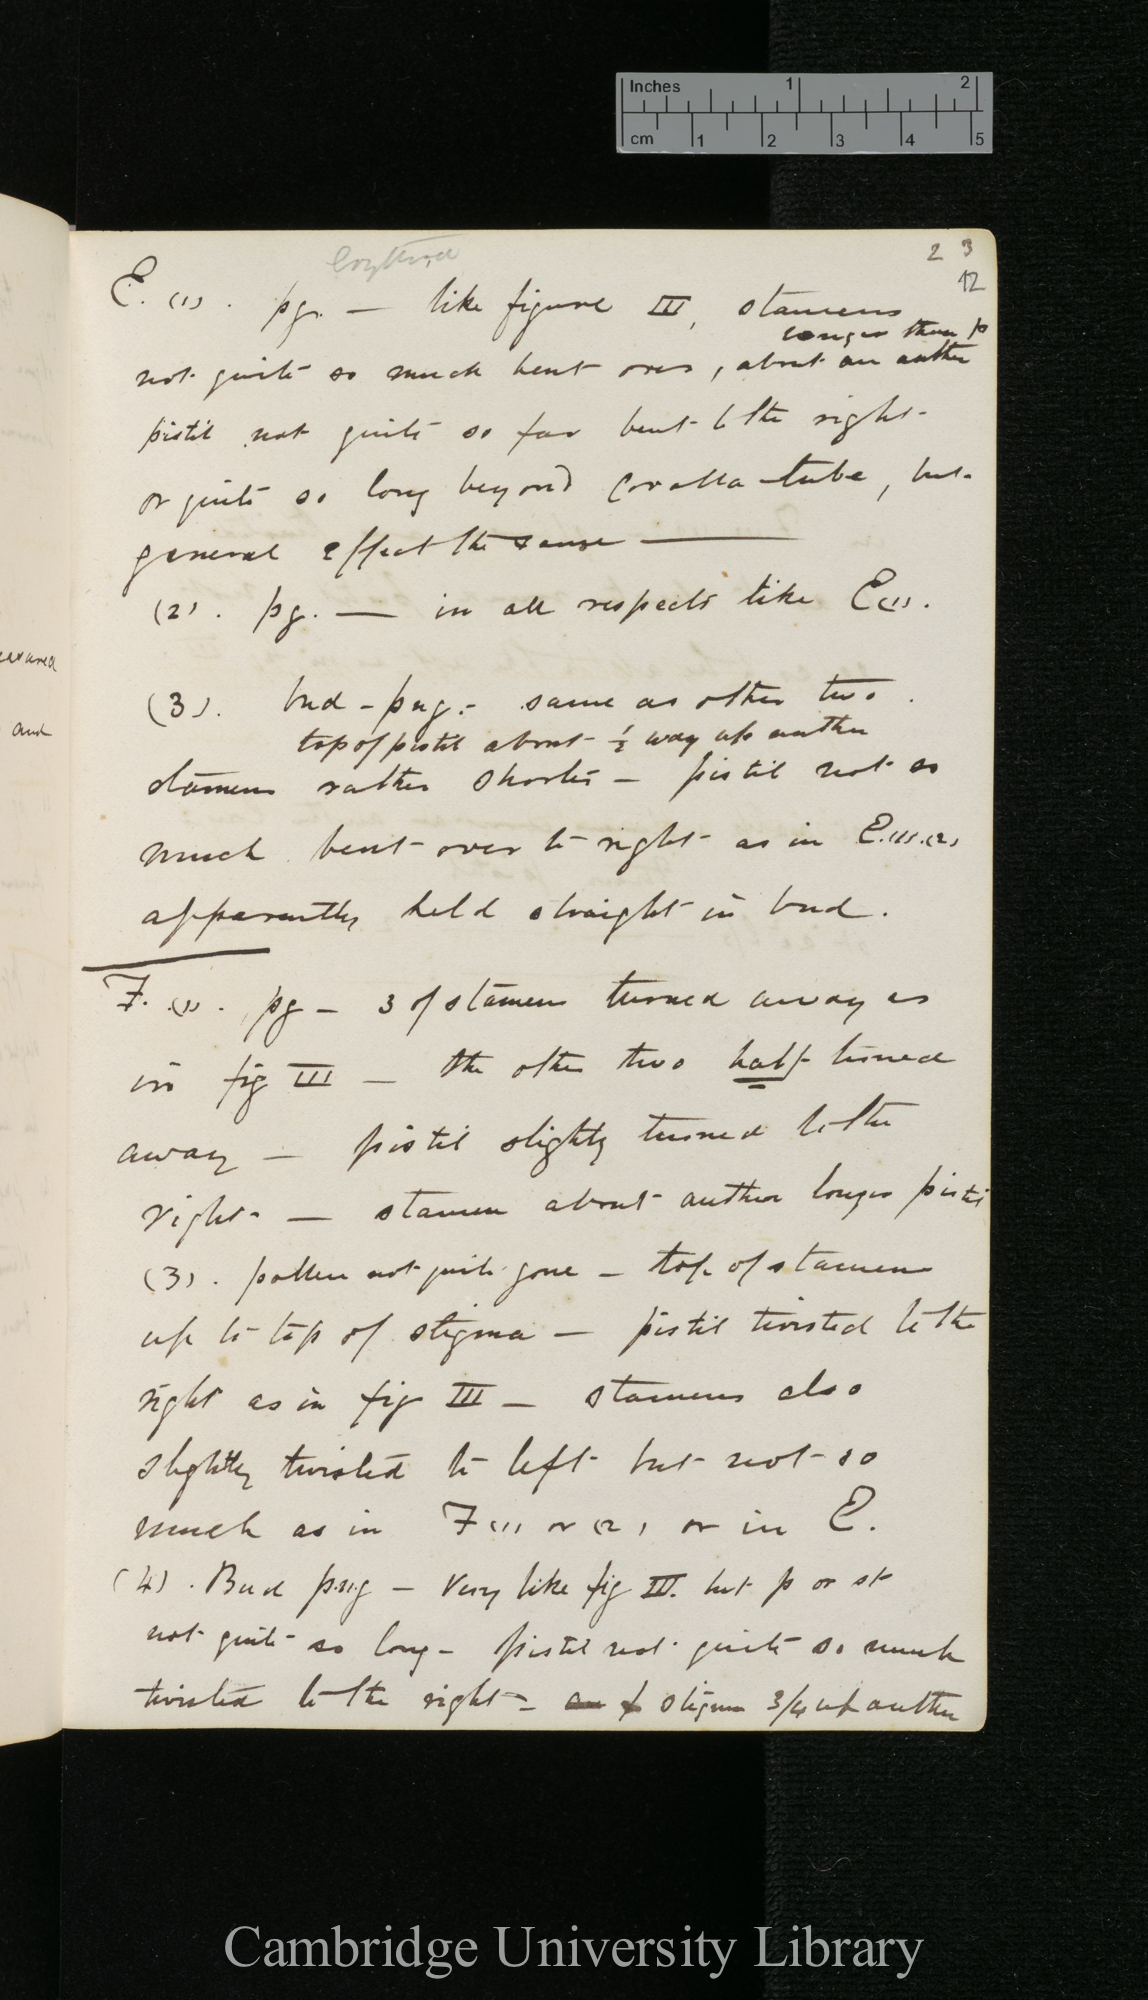 Inches 1 2
cm 1 2 3 4 5
2 3
12
E. (1). pg. — like figure III, stamens
longer than p
not quite so much bent over, about an anther
pistil not quite so far bent to the right
or quite so long beyond corolla-tube, but
general effect the same —
(2). pg. — in all respects like E(1).
(3). bud - png:- same as other two.
top of pistil about ½ way up anther
stamens rather shorter — pistil not so
much bent over to right as in E.(1).(2)
apparently held straight in bud.
F. (1). pg — 3 of stamens turned away as
in fig III — the other two half turned
away — pistil slightly turned to the
right — stamen about anther longer pistil
(3). pollen not quite gone — top of stamen
up to top of stigma — pistil twisted to the
right as in fig III — stamens also
slightly twisted to left but not so
much as in F(1) or (2) or in E.
(4). Bud p.n.g — very like fig III. but p or st
not quite so long — pistil not quite so much
twisted to the right — stigma 3/4 up anther
and
Cambridge University Library